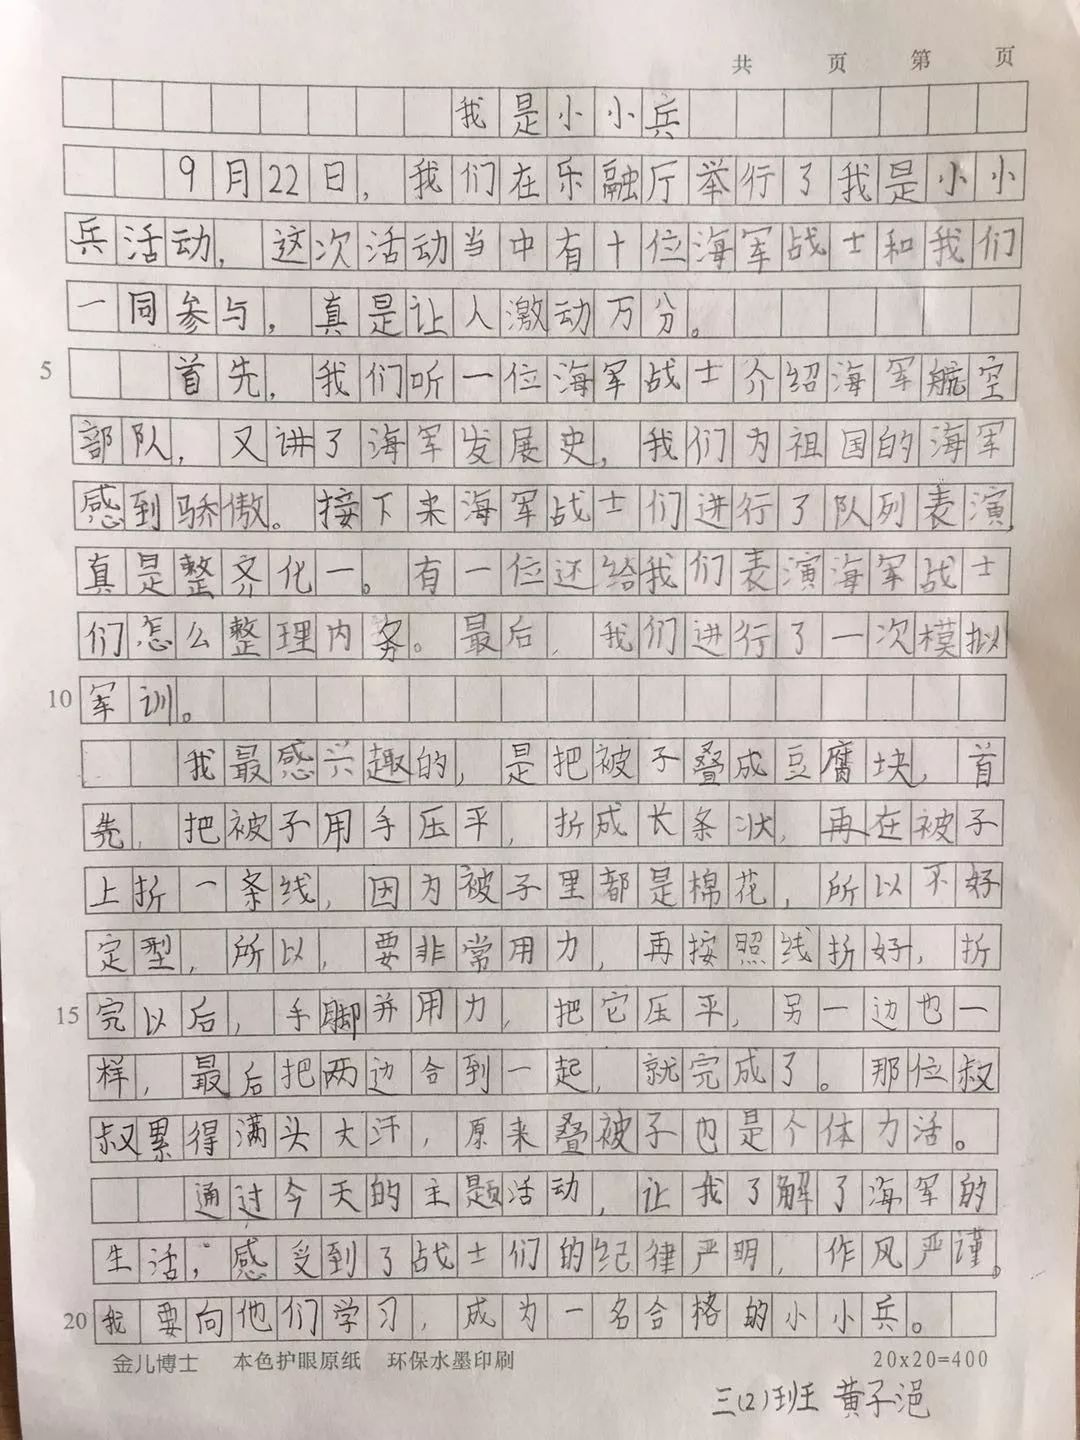 共 页 第 页
我是小小兵
9月22日，我们在乐融厅举行了我是小小
兵活动，这次活动当中有十位海军战士和我们
一同参与，真是让人激动万分。
5 首先，我们听一位海军战士介绍海军航空
部队，又讲了海军发展史，我们为祖国的海军
感到骄傲。接下来海军战士们进行了队列表演，
真是整齐化一。有一位还给我们表演海军战士
们怎么整理内务。最后，我们进行了一次模拟
10 军训。
我最感兴趣的，是把被子叠成豆腐块，首
先，把被子用手压平，折成长条状，再在被子
上折一条线，因为被子里都是棉花，所以不好
定型，所以，要非常用力，再按照线折好，折
15 完以后，手脚并用力，把它压平，另一边也一
样，最后把两边合到一起，就完成了。那位叔
叔累得满头大汗，原来叠被子也是个体力活。
通过今天的主题活动，让我了解了海军的
生活，感受到了战士们的纪律严明，作风严谨。
20 我要向他们学习，成为一名合格的小小兵。
金儿博士 本色护眼原纸 环保水墨印刷 20x20=400
三(2)班 黄子浥